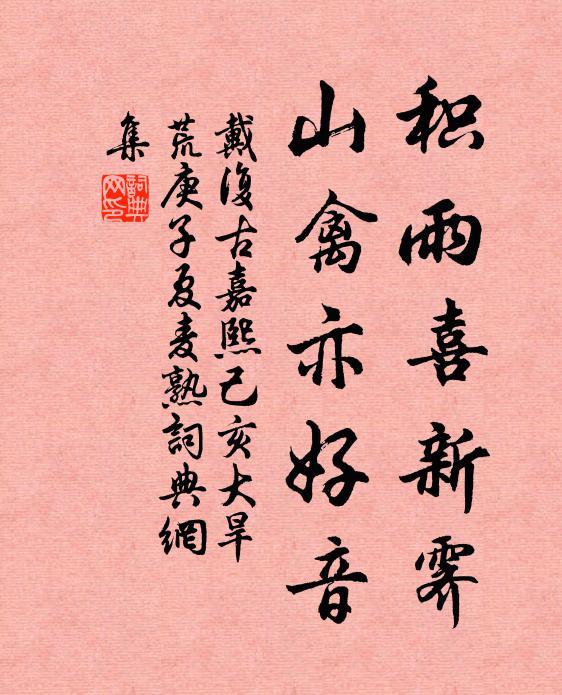 积雨喜新霁
山禽亦好音
戴復古嘉熙己亥大旱
荒庚子夏麦熟詞典網
集
詞典
网印